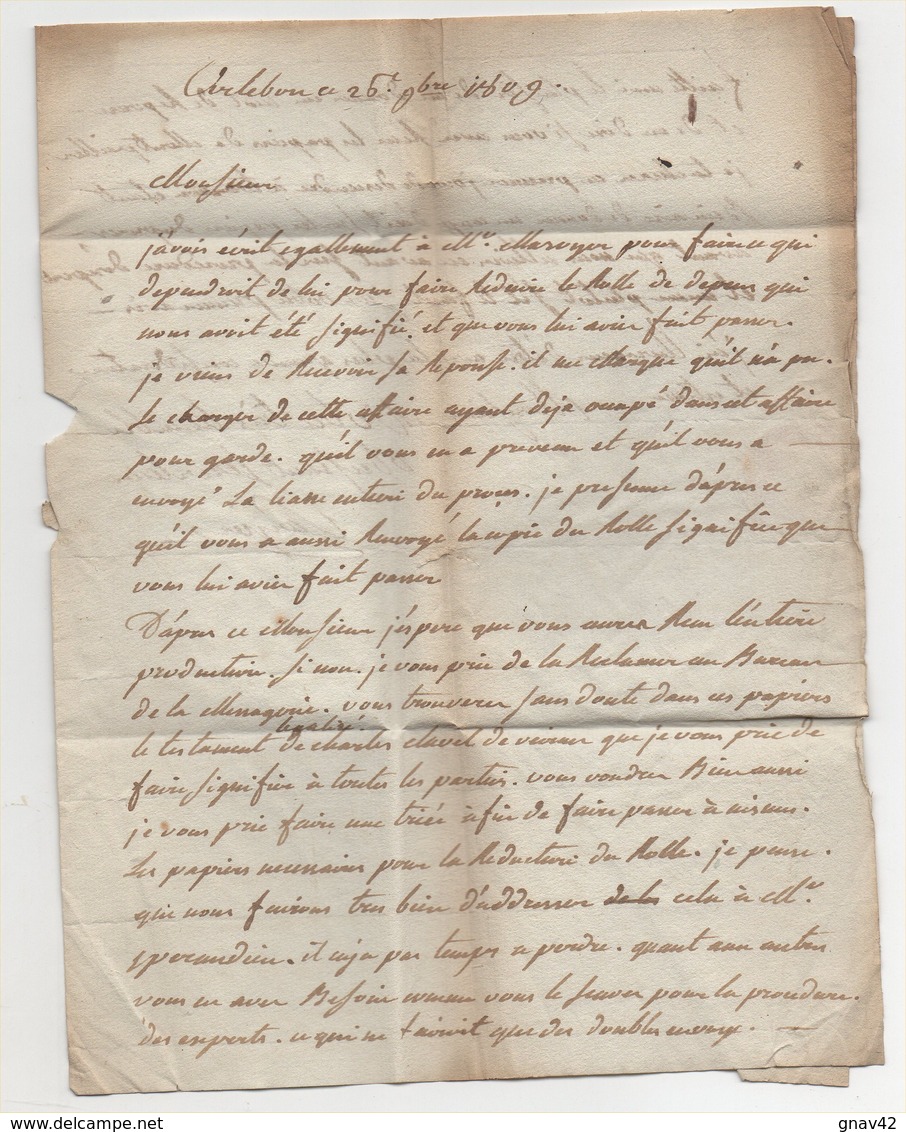 ce 26.e 9bre 1809.
Monsieur
j'avois écrit egallement à Mr. Maroyer pour faire ce qui
dependroit de lui pour faire Reduire le Rolle de depens qui
nous avoit été signifié, et que vous lui avier fait passer.
je viens de Recevoir sa Reponse. il me Marque qu'il n'a pu.
se charger de cette affaire ayant deja ocupé dans cet affaire
pour garde. qu'il vous en a prevenu et qu'il vous a
envoyé La liasse entiere du proces. je presume d'apres ce
qu'il vous a aussi Renvoyé la copie du Rolle signifiée que
vous lui avier fait passer
D'apres ce Monsieur j'espere que vous aurez Recu l'entiere
production. si non. je vous prie de la Reclamer au Bureau
de la Messagerie. vous trouverer sans doute dans ces papiers
legalisé
le testament de charles clavel de que je vous prie de
faire signifier à toutes les parties. vous voudrer Bien aussi
je vous prie faire une triée afin de faire passer à nismes.
Les papiers necessaires pour la Reduction du Rolle. je pense.
que nous fairons tres bien d'addresser cela à Mr.
sperandieu. il n'a pas temps a perdre. quant aux autres
vous en aver Besoin comme vous le scaver pour la procedure.
des experts. ce qui ne fairoit que des doubles envoys.
gnav42